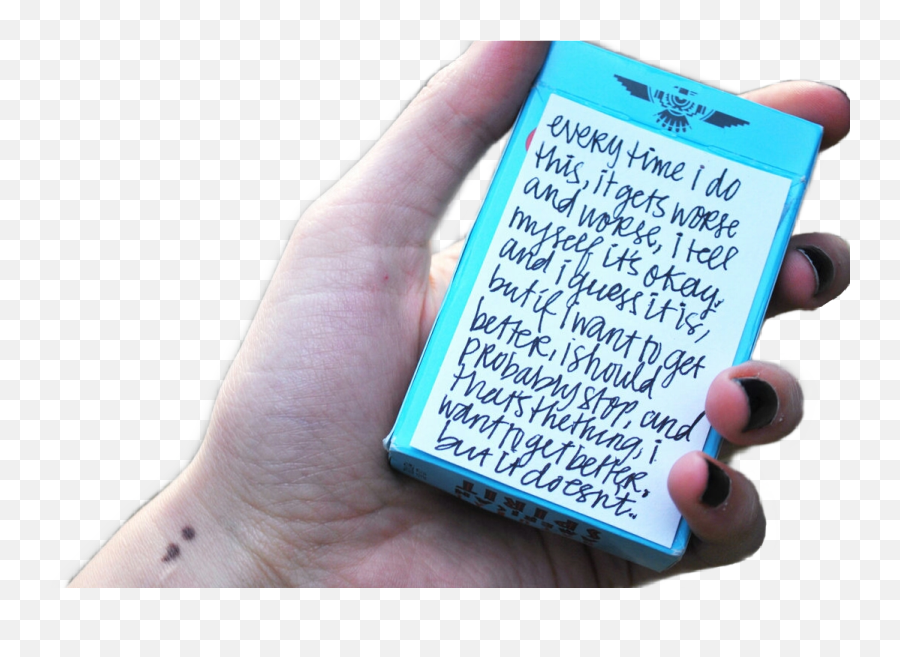 every time i do
this, it gets worse
and worse, i tell
myself it's okay.
and i guess it is,
but if i want to get
better, i should
probably stop, and
thats the thing, i
want to get better.
but it doesnt..
AMERICAN
SPIRIT